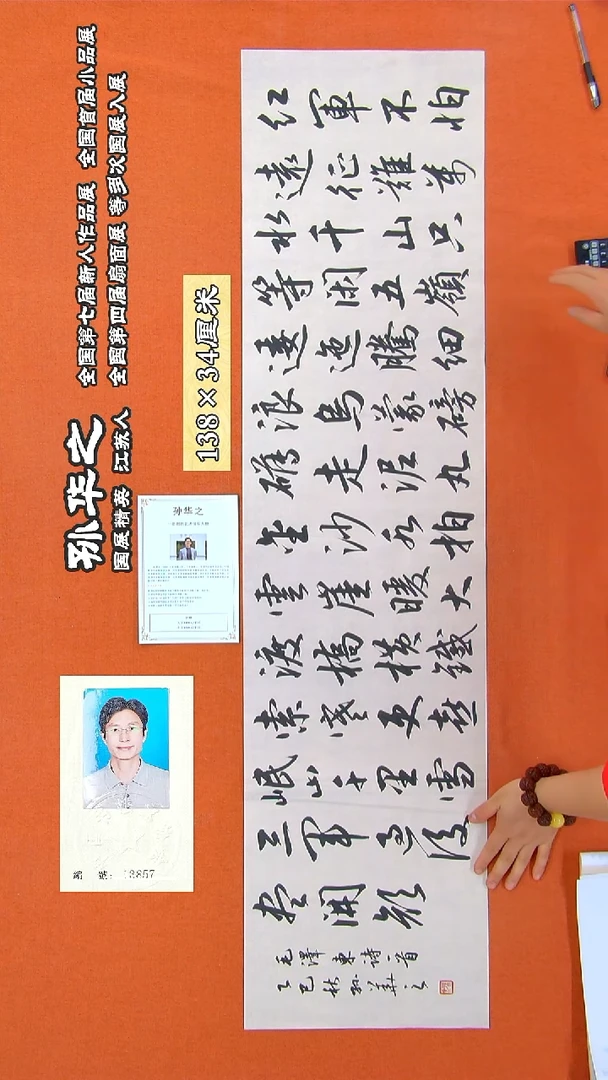 孙华之
国展精英 江苏人
全国第七届新人作品展 全国首届小品展
全国第四届扇面展 等多次国展入展
138×34厘米
孙华之
红軍不怕
遠征難萬
水千山只
等闲五嶺
逶迤騰细
浪烏蒙磅
礴走泥丸
金沙水拍
雲崖暖大
渡橋横鐵
索寒更喜
岷山千里雪
三軍過後
尽開颜
毛澤東诗一首
乙巳秋孙華之